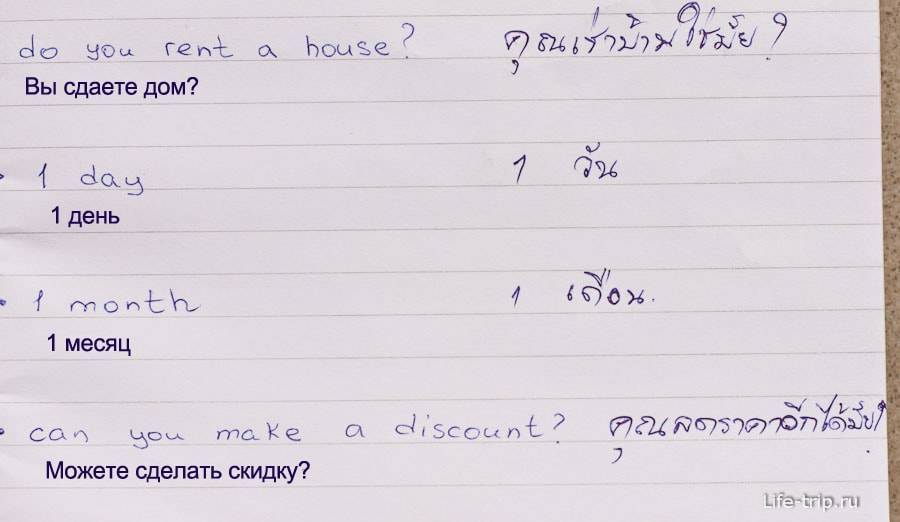 do you rent a house? คุณเช่าบ้านใช่มั้ย?
Вы сдаете дом?
1 day 1 วัน
1 день
1 month 1 เดือน.
1 месяц
can you make a discount? คุณลดราคาอีกได้มั้ย?
Можете сделать скидку?
Life-trip.ru